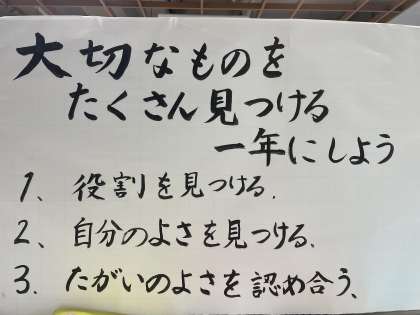 大切なものを
たくさん見つける
一年にしよう
1、役割を見つける.
2、自分のよさを見つける.
3.たがいのよさを認め合う、